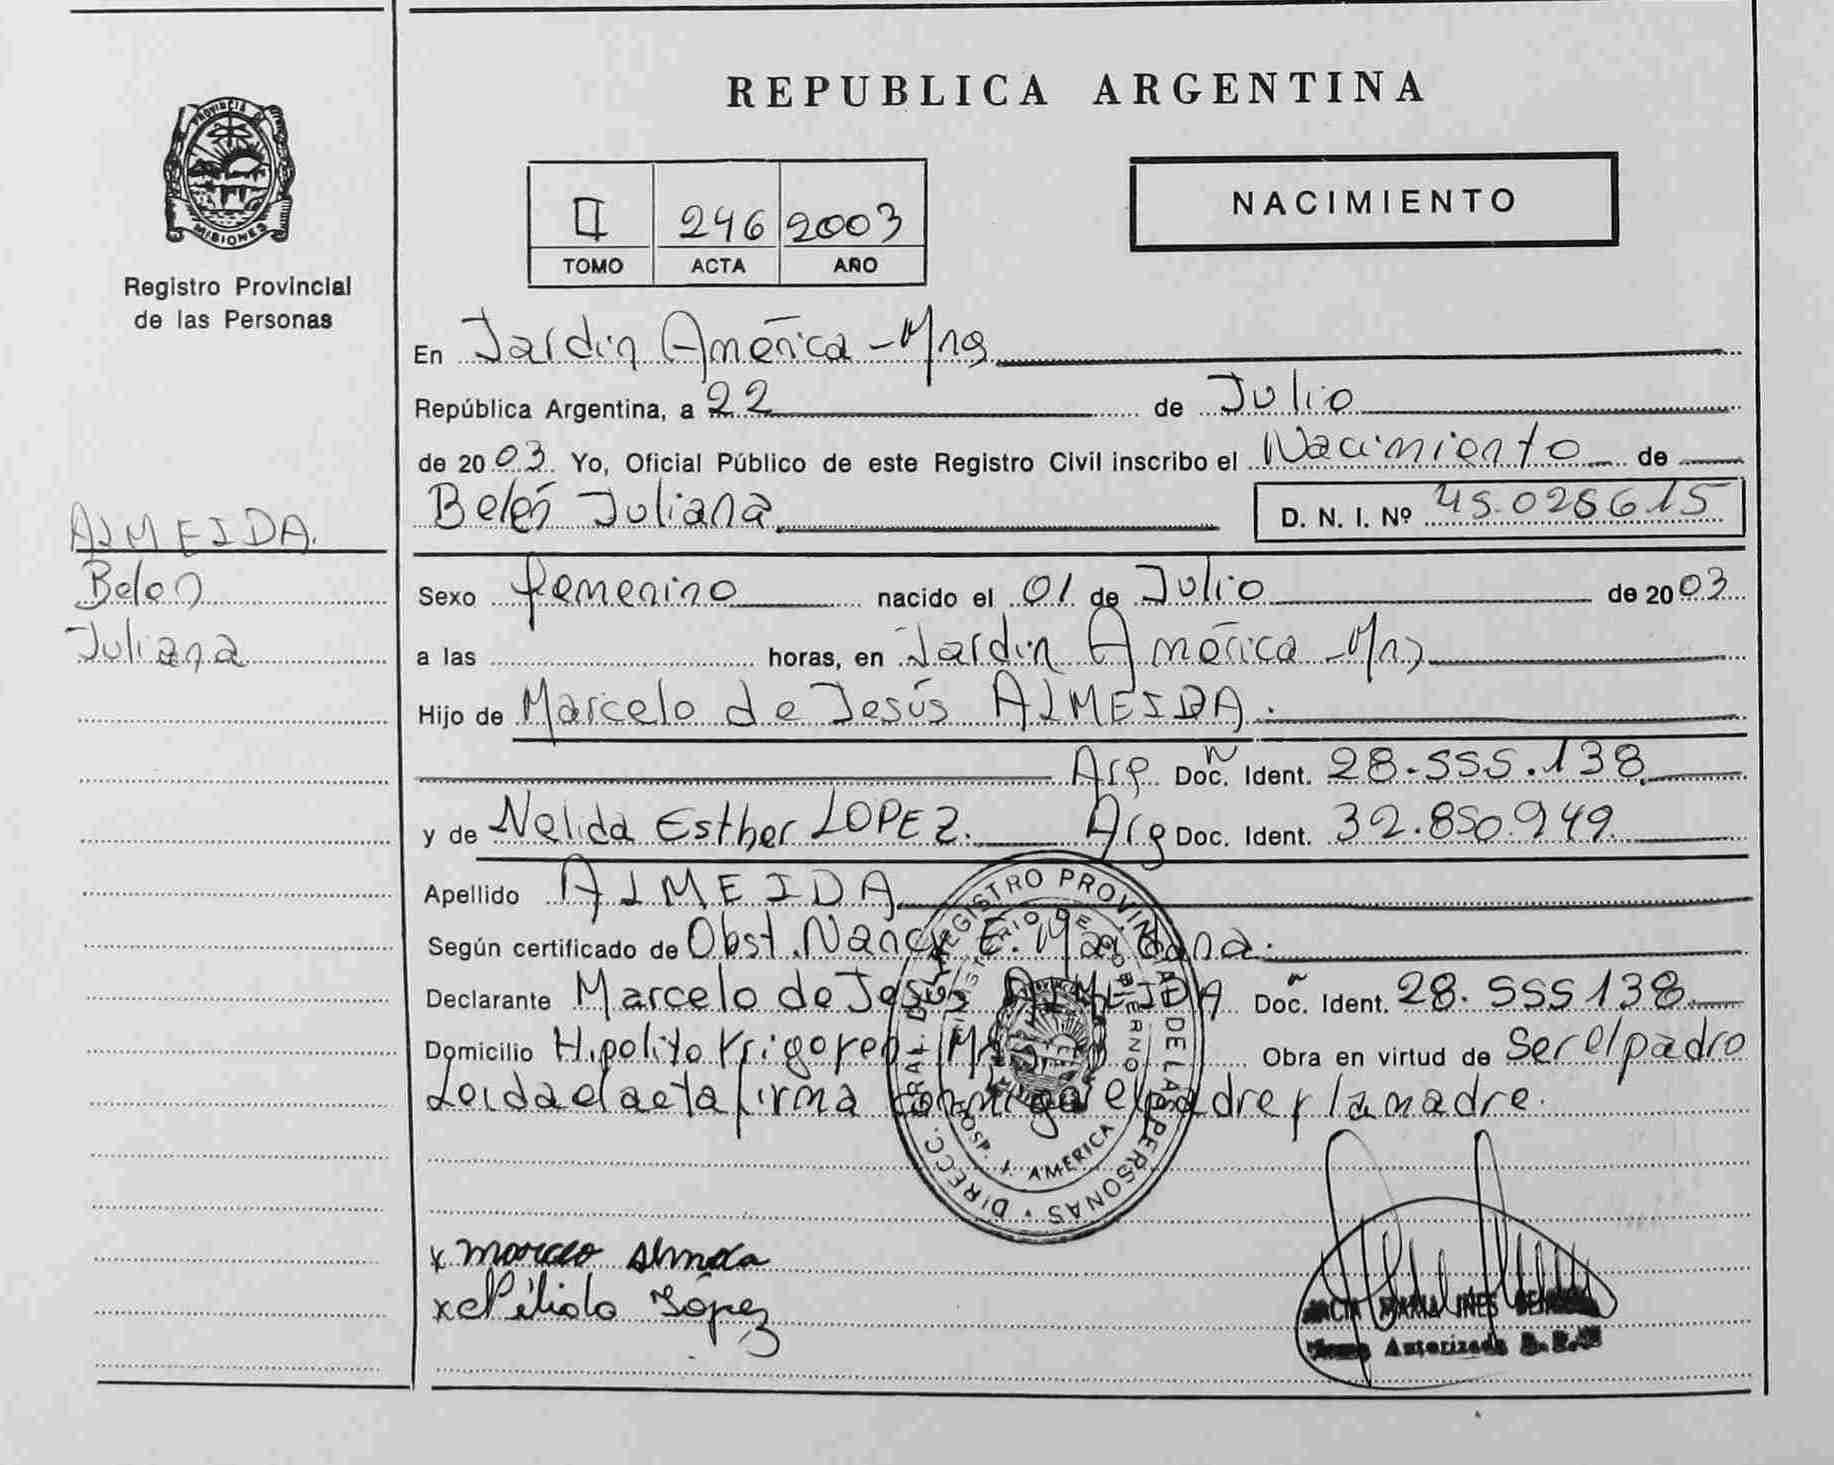 PROVINCIA DE
MISIONES
Registro Provincial
de las Personas
ALMEIDA.
Belen
Juliana
REPUBLICA ARGENTINA
II 246 2003
TOMO ACTA AÑO
NACIMIENTO
En Jardin América - Mns
República Argentina, a 22 de Julio
de 2003 Yo, Oficial Público de este Registro Civil inscribo el Nacimiento de
Belén Juliana D. N. I. Nº 45.028615
Sexo femenino nacido el 01 de Julio de 2003
a las horas, en Jardin América - Mns
Hijo de Marcelo de Jesús ALMEIDA.
Arg. Doc. Ident. 28.555.138
y de Nelida Esther LOPEZ. Arg Doc. Ident. 32.850.949
Apellido ALMEIDA
Según certificado de Obst. Nancy E.
Declarante Marcelo de Jesús ALMEIDA Doc. Ident. 28.555138
Domicilio Hipolito Yrigoyen - Mns Obra en virtud de Ser el padre
Leida el acta firma conmigo el padre y la madre.
DIRECC. GRAL. DEL REGISTRO PROVINCIAL DE LAS PERSONAS
MINISTERIO DE GOBIERNO
HOSP. J. AMERICA
x Marcelo Almeda
x Nélida López
MARIA INES
Autorizada